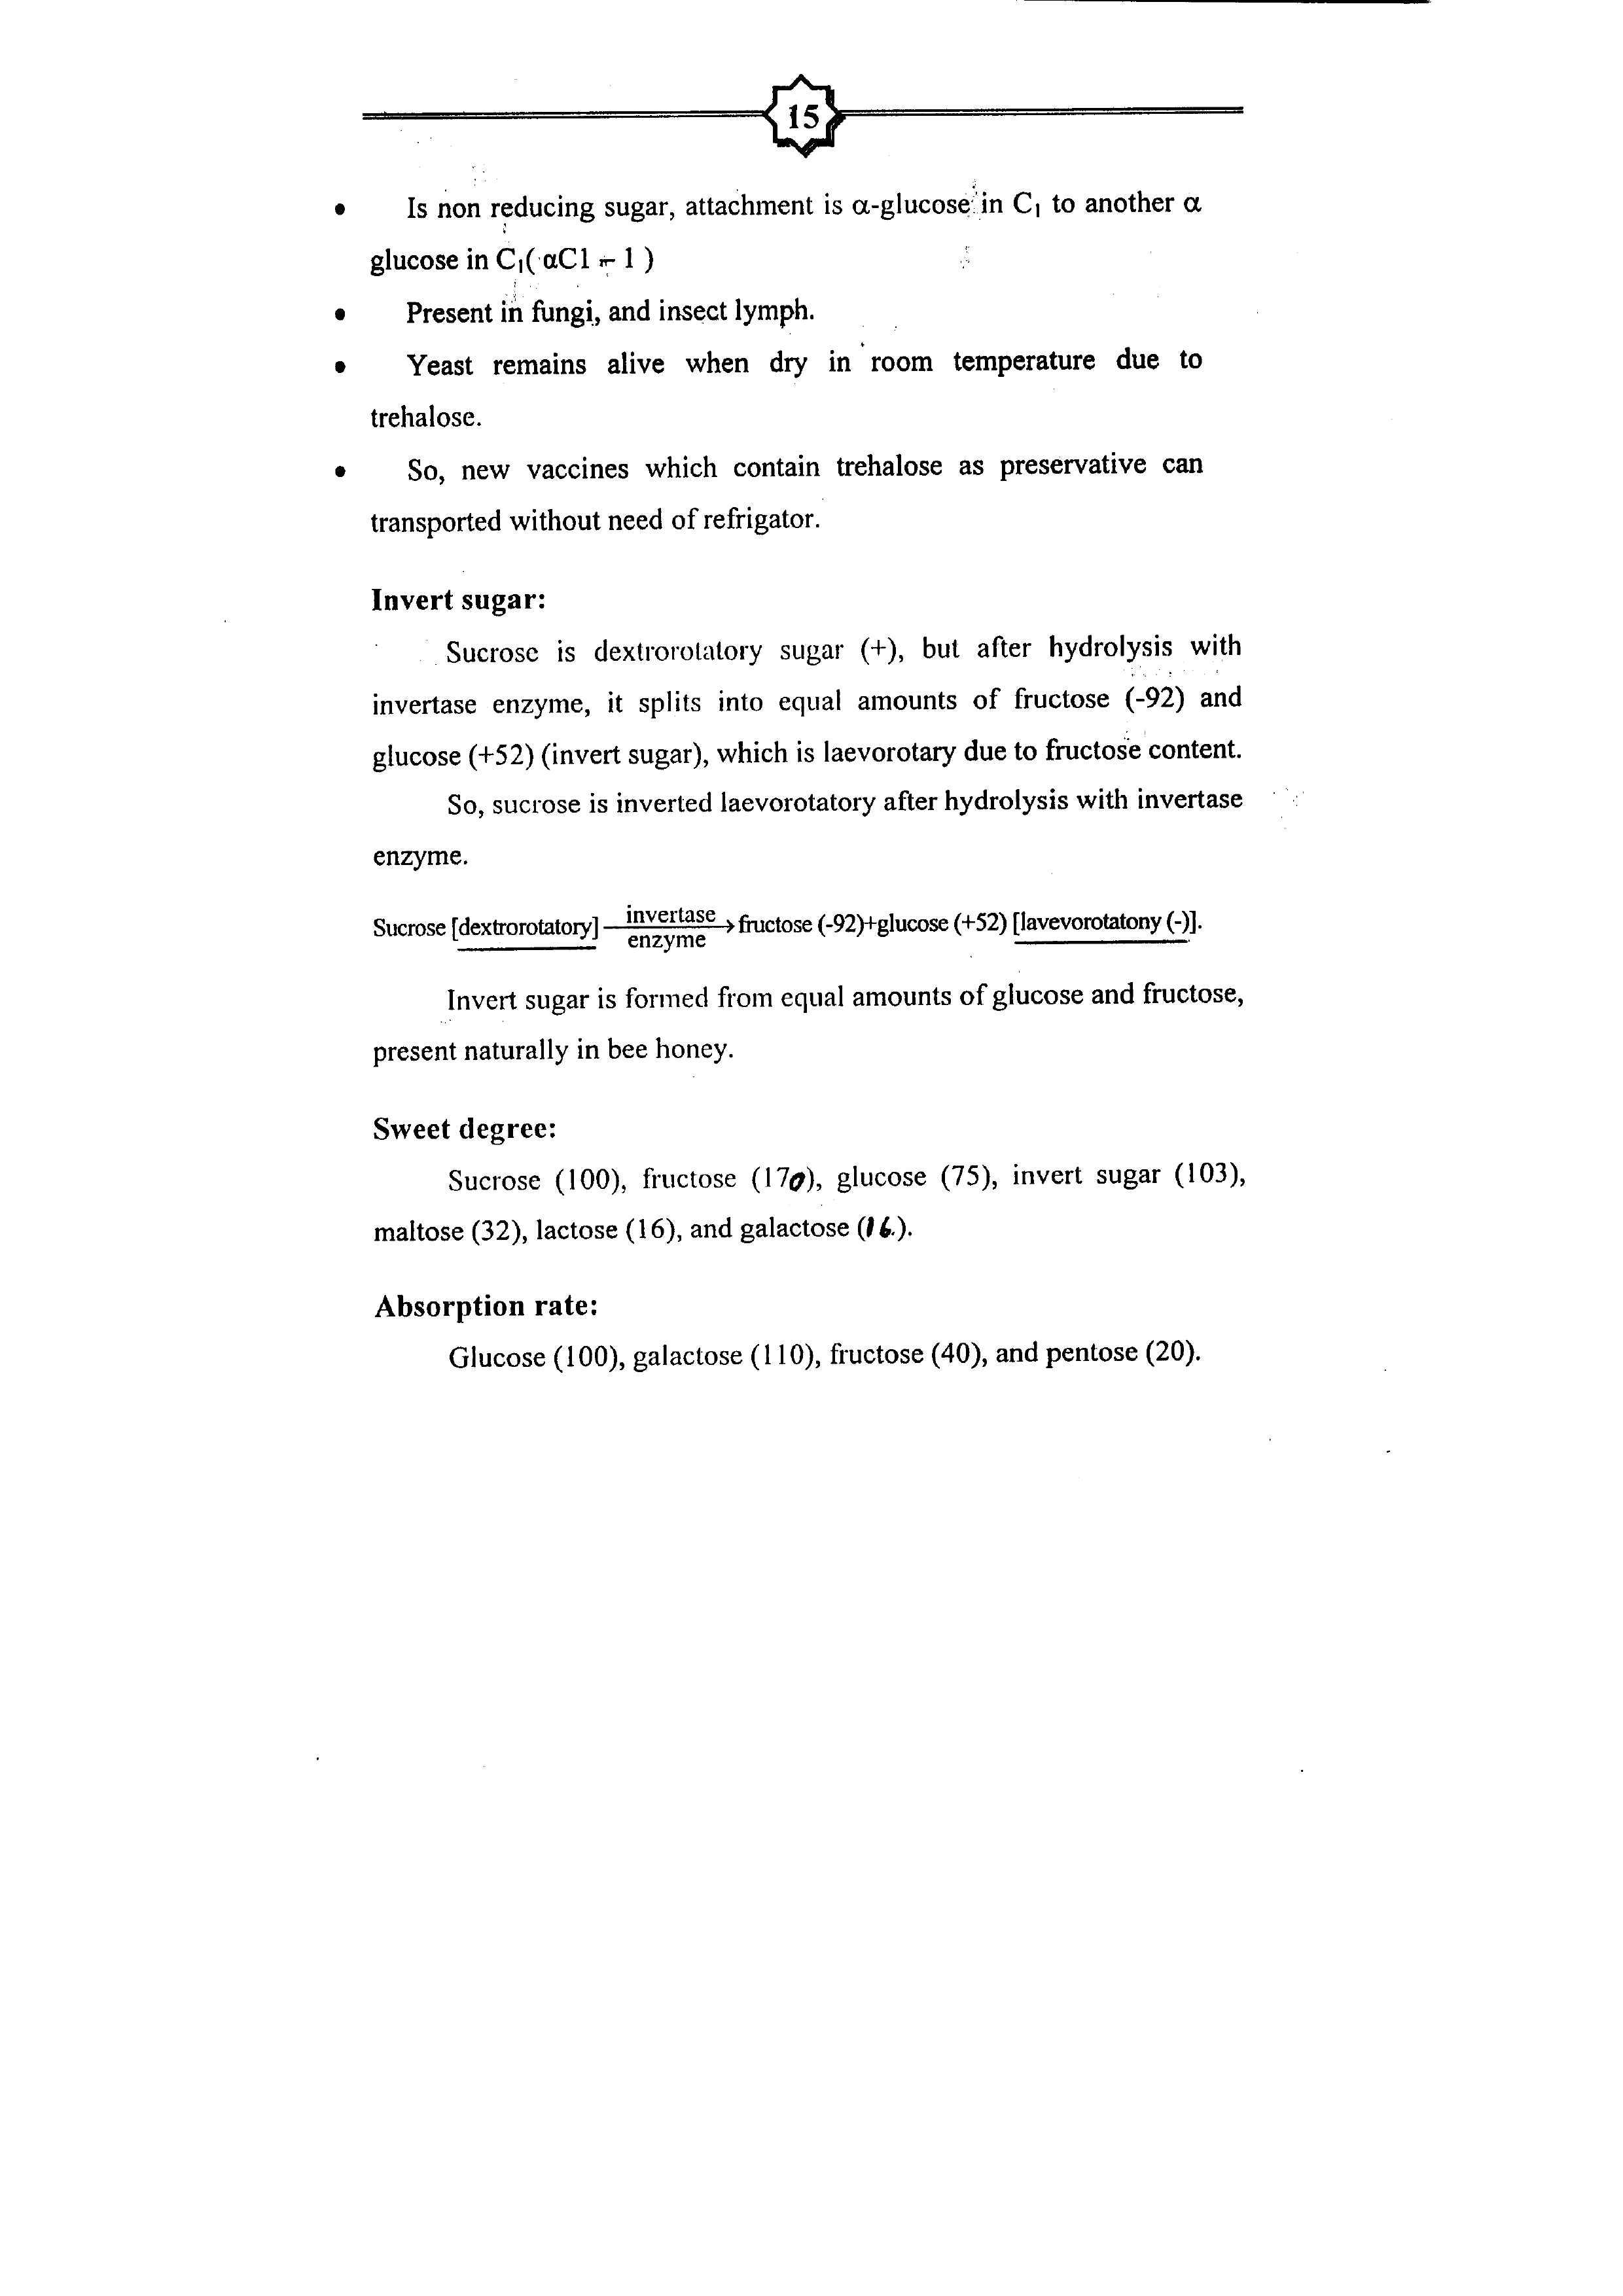 15
• Is non reducing sugar, attachment is α-glucose in C₁ to another α
glucose in C₁( αC1 – 1 )
• Present in fungi, and insect lymph.
• Yeast remains alive when dry in room temperature due to
trehalose.
• So, new vaccines which contain trehalose as preservative can
transported without need of refrigator.
Invert sugar:
Sucrose is dextrorotatory sugar (+), but after hydrolysis with
invertase enzyme, it splits into equal amounts of fructose (-92) and
glucose (+52) (invert sugar), which is laevorotary due to fructose content.
So, sucrose is inverted laevorotatory after hydrolysis with invertase
enzyme.
Sucrose [dextrorotatory] invertase enzyme → fructose (-92)+glucose (+52) [lavevorotatony (-)].
Invert sugar is formed from equal amounts of glucose and fructose,
present naturally in bee honey.
Sweet degree:
Sucrose (100), fructose (170), glucose (75), invert sugar (103),
maltose (32), lactose (16), and galactose (16.).
Absorption rate:
Glucose (100), galactose (110), fructose (40), and pentose (20).